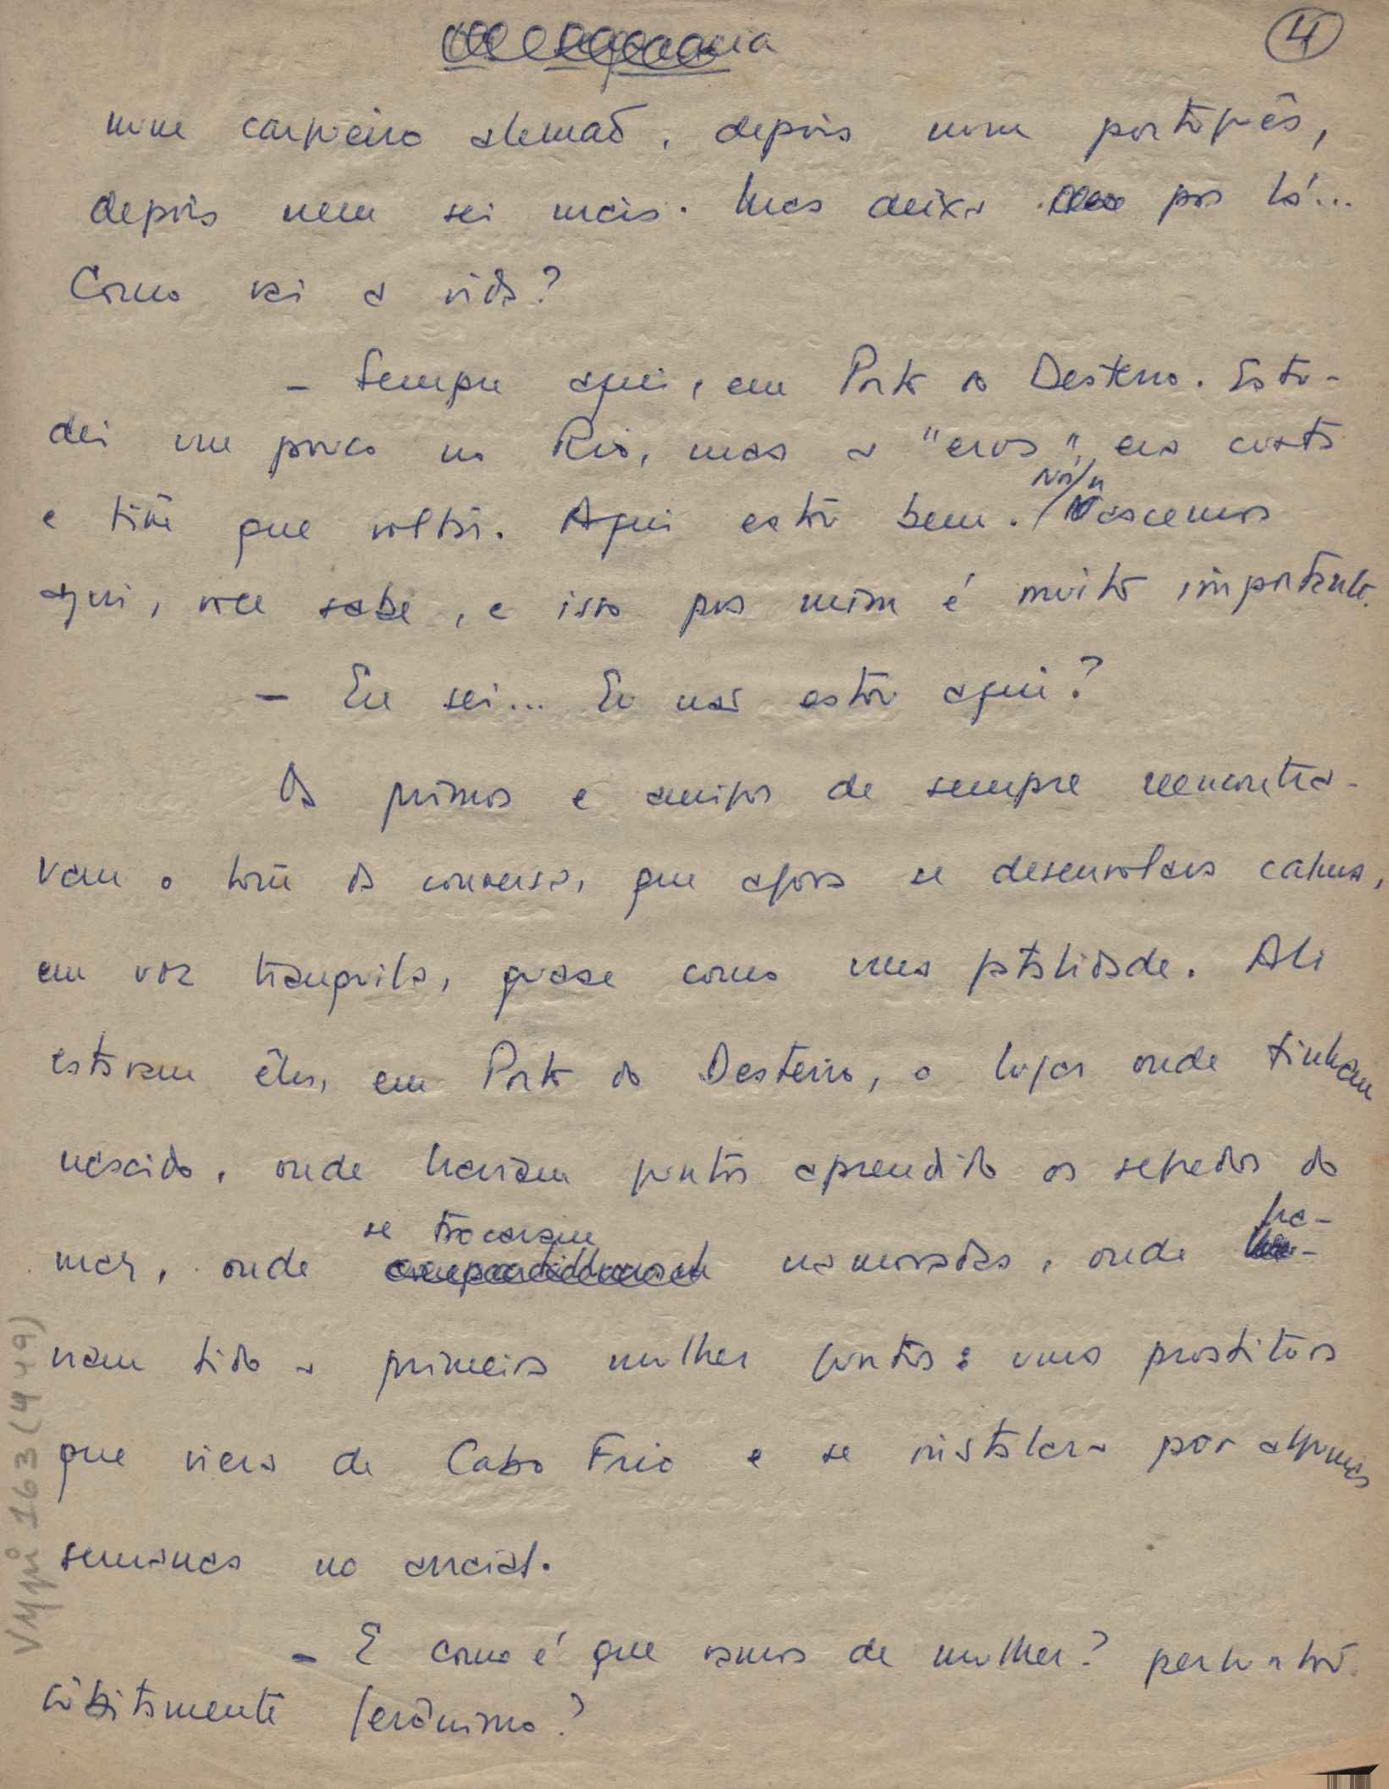 4
num cargueiro alemão, depois num português,
depois nem sei mais. Mas deixa pra lá...
Como vai a vida?
- Sempre aqui, em Porto do Desterro. Estu-
dei um pouco no Rio, mas a "erva" era curta
e tive que voltar. Aqui estou bem. Nós n
Nascemos
aqui, você sabe, e isso pra mim é muito importante.
- Eu sei... Eu não estou aqui?
Os primos e amigos de sempre reencontra-
vam o tom da conversa, que agora se desenrolava calma,
em voz tranquila, quase como uma fatalidade. Ali
estavam êles, em Porto do Desterro, o lugar onde tinham
nascido, onde haviam juntos aprendido os segredos do
se trocaram
ha-
mar, onde compartilharam namoradas, onde
viam tido a primeira mulher juntos: uma prostituta
que viera de Cabo Frio e se instalara por algumas
semanas no arraial.
- E como é que vamos de mulher? perguntou
sùbitamente Jerônimo?
VMpi 163 (4